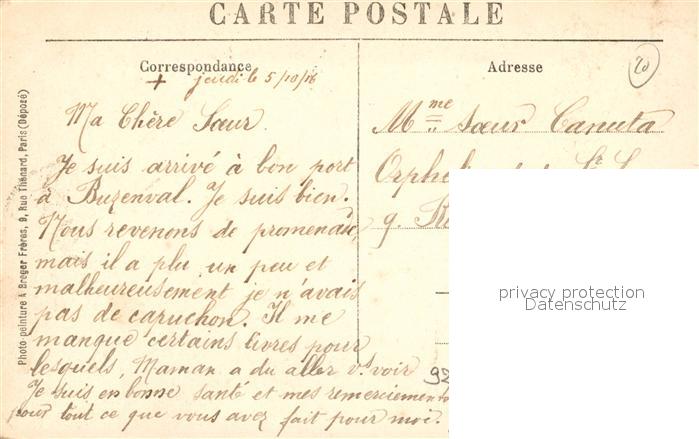 CARTE POSTALE
Correspondance
+ jeudi le 5/10/16
Ma Chère Sœur
Je suis arrivé à bon port
à Buzenval. Je suis bien.
Nous revenons de promenade,
mais il a plu un peu et
malheureusement je n'avais
pas de capuchon. Il me
manque certains livres pour
lesquels, Maman a du aller v.s voir
Je suis en bonne santé et mes remerciements
pour tout ce que vous avez fait pour moi.
Adresse
20
Mme Sœur Canuta
9.
92
Photo-peinture A Breger Frères, 9, Rue Thénard, Paris (Déposé)
privacy protection
Datenschutz